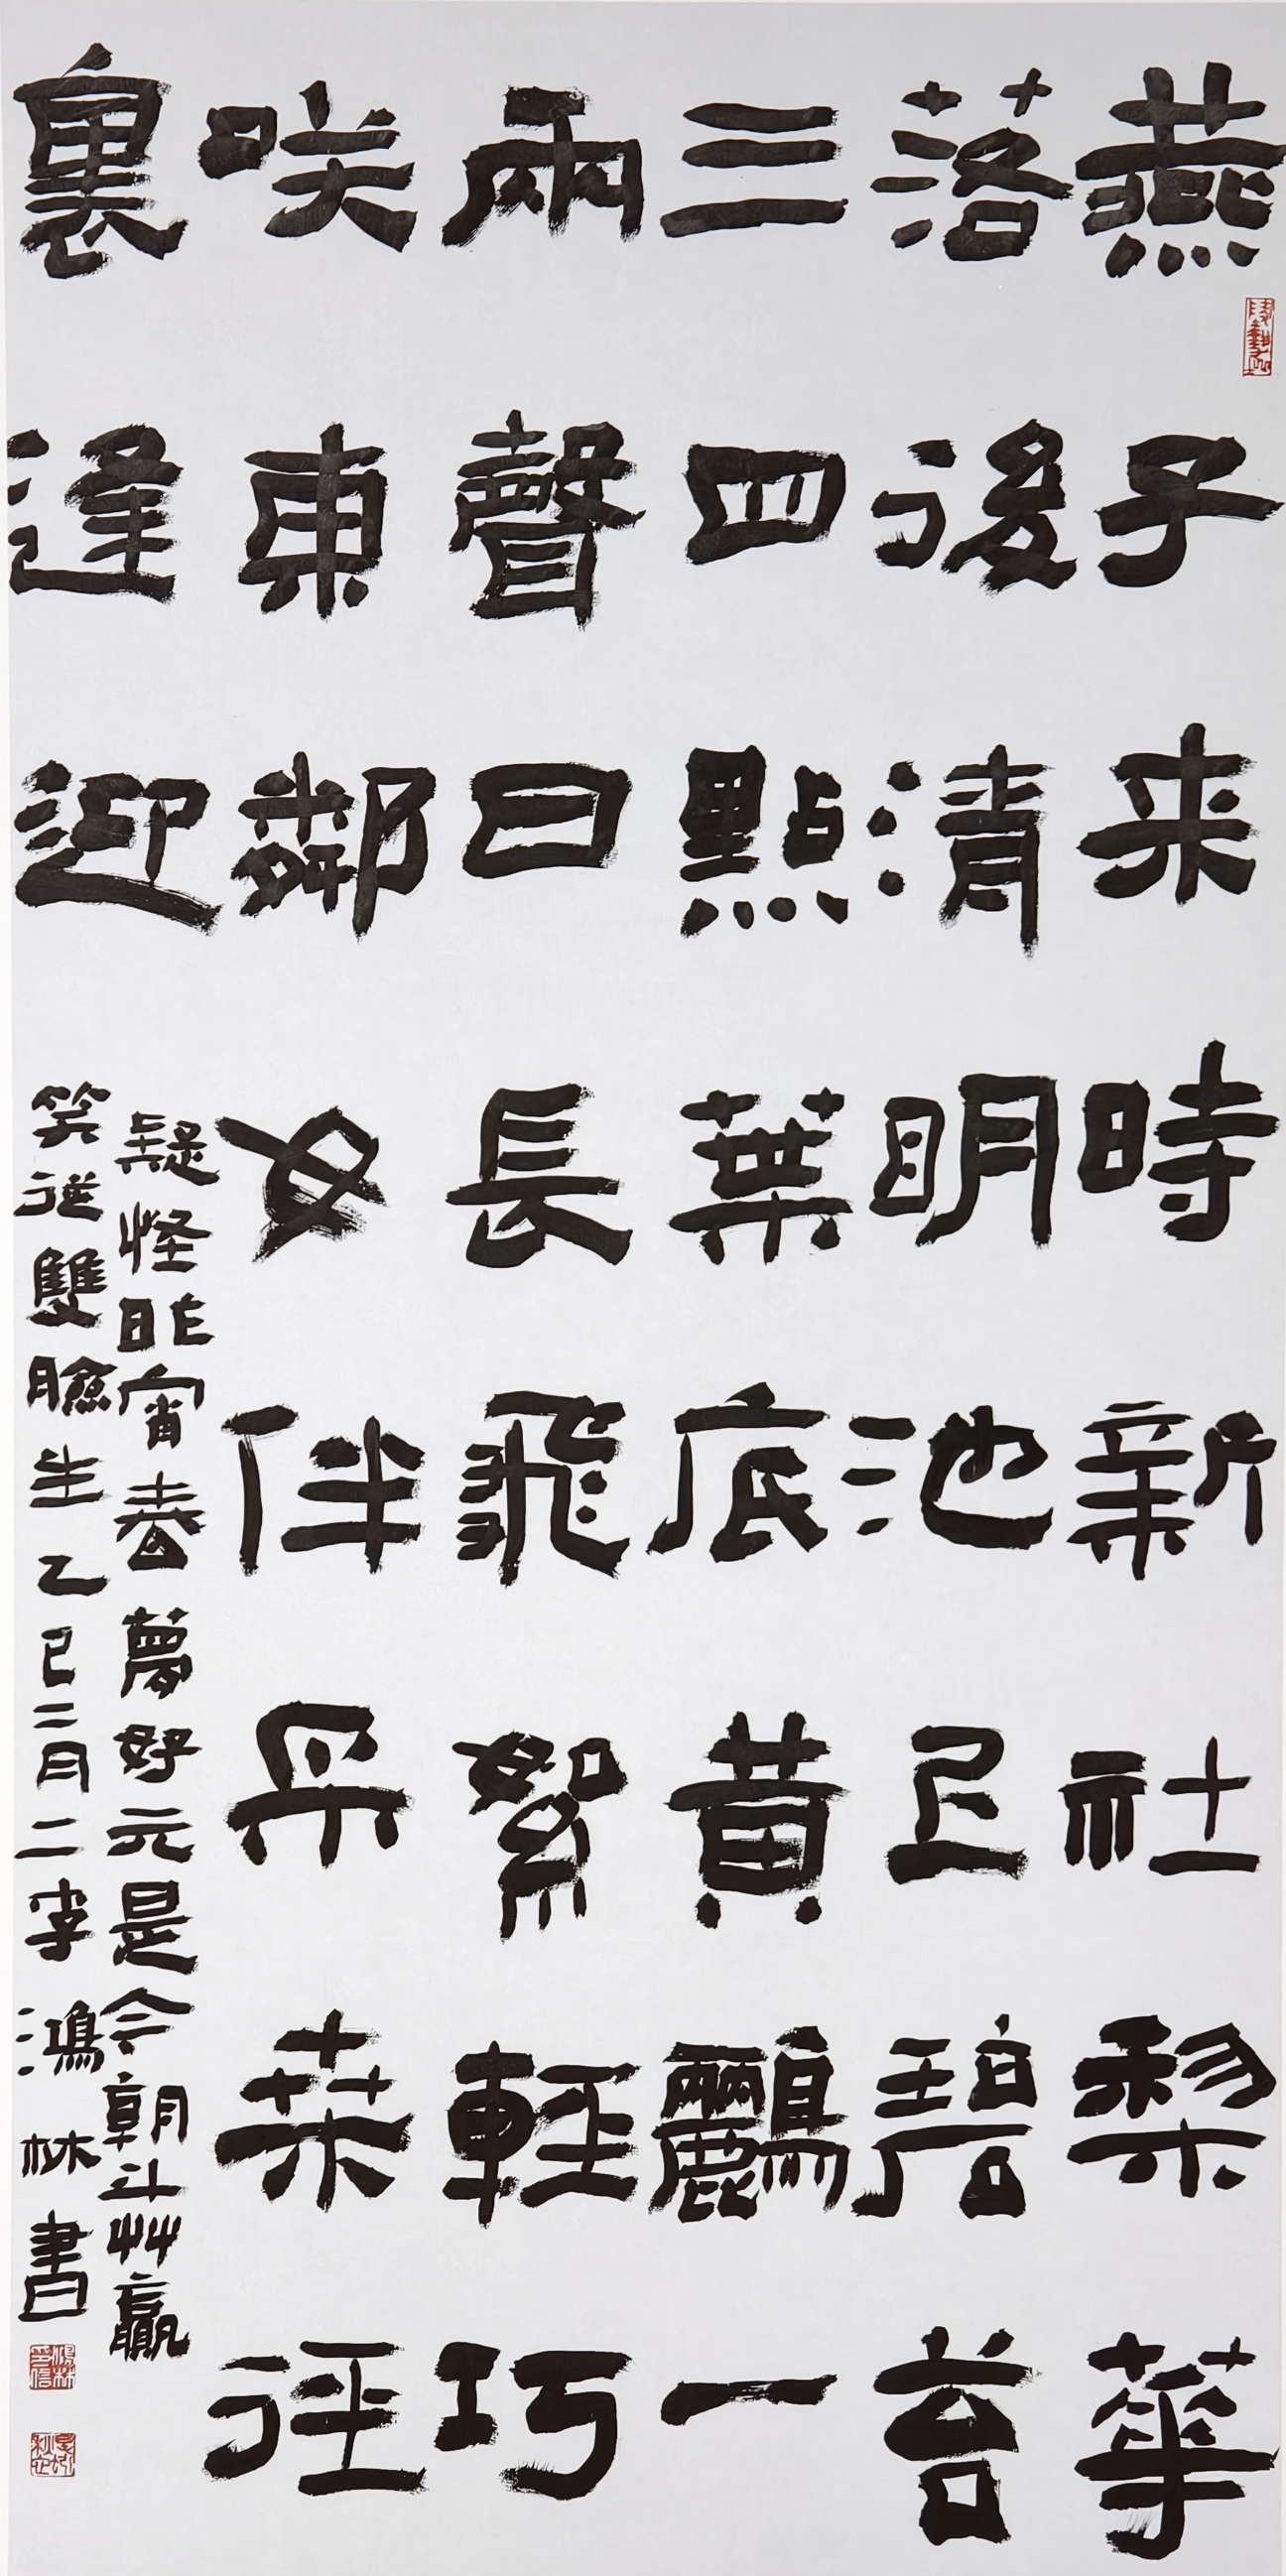 燕子来時新社梨華
落後清明池上碧苔
三四點葉底黃鸝一
兩聲日長飛絮輕巧
咲東鄰女伴采桒徑
裏逢迎
疑怪昨宵春夢好元是今朝斗艸贏
笑從雙臉生乙巳二月二李鴻林書
鴻林印信